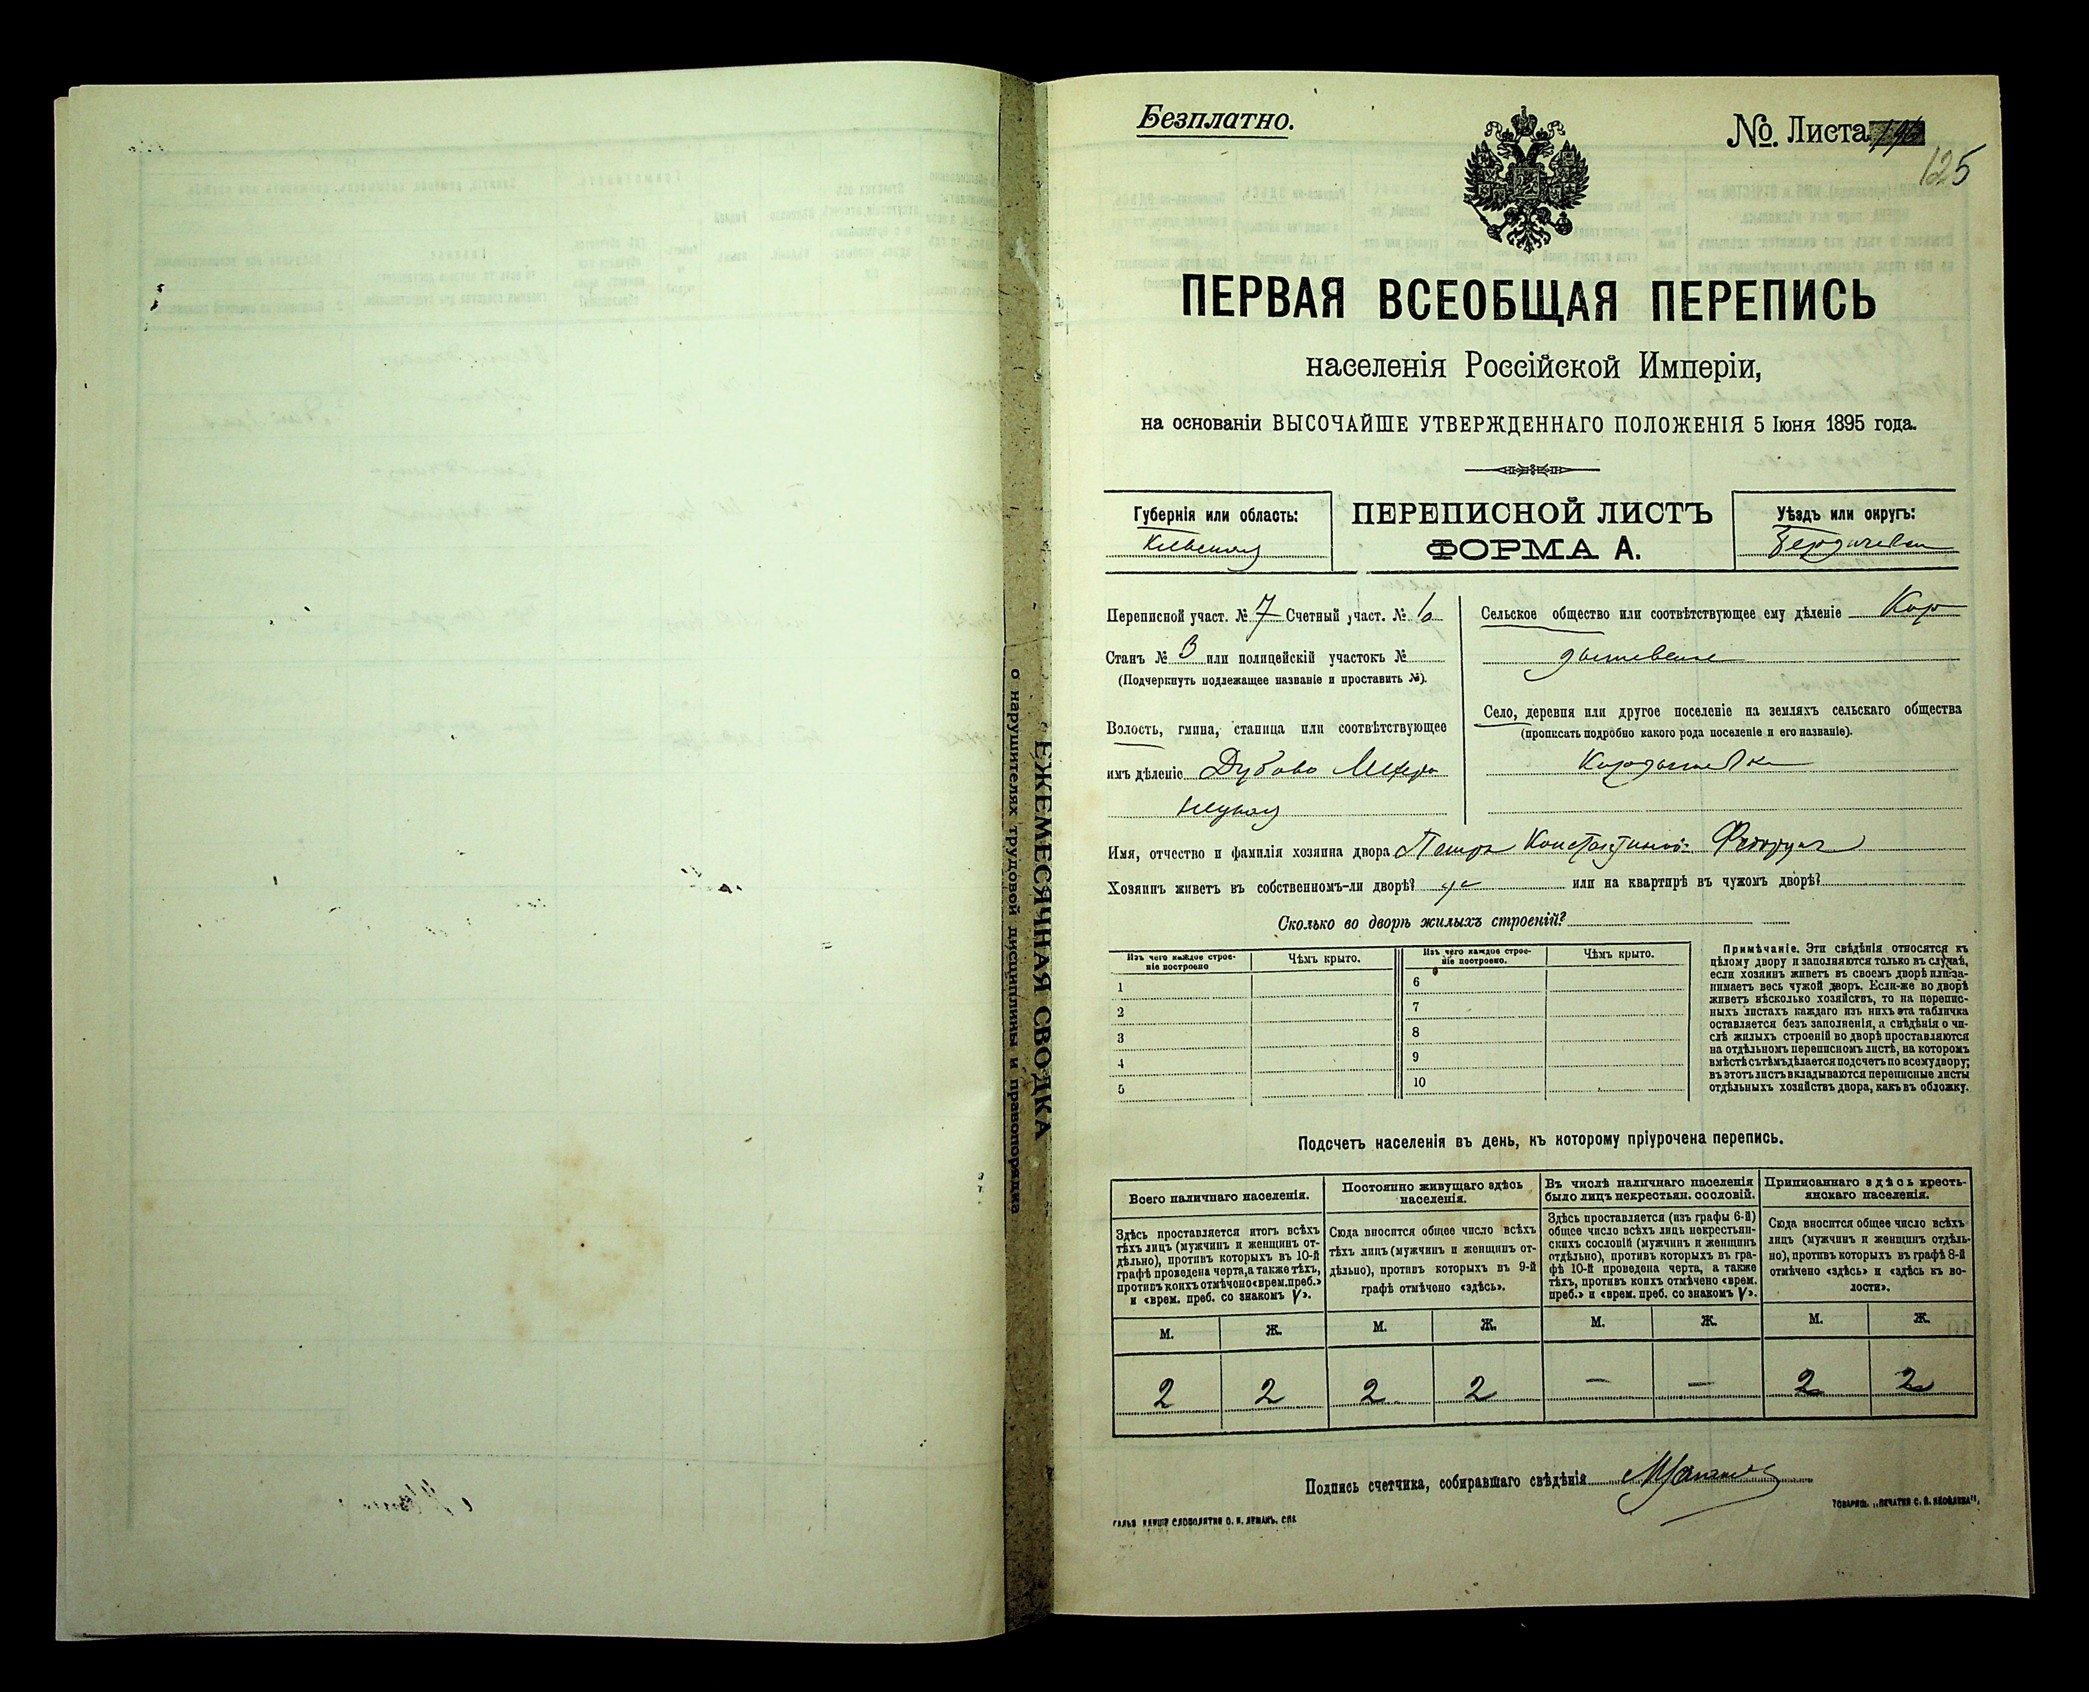 Безплатно.
№. Листа
125
ПЕРВАЯ ВСЕОБЩАЯ ПЕРЕПИСЬ
населенія Россійской Имперіи,
на основаніи ВЫСОЧАЙШЕ УТВЕРЖДЕННАГО ПОЛОЖЕНІЯ 5 Іюня 1895 года.
Губернія или область:
Кіевская
ПЕРЕПИСНОЙ ЛИСТЪ
ФОРМА А.
Уѣздъ или округъ:
Бердичевскій
Переписной участ. № 7 Счетный участ. № 6
Станъ № 3 или полицейскій участокъ №
(Подчеркнуть подлежащее названіе и проставить №).
Волость, гмина, станица или соотвѣтствующее
имъ дѣленіе Дубово
Сельское общество или соотвѣтствующее ему дѣленіе
Село, деревня или другое поселеніе на земляхъ сельскаго общества
(прописать подробно какого рода поселеніе и его названіе).
Имя, отчество и фамилія хозяина двора Петръ
Хозяинъ живетъ въ собственномъ-ли дворѣ? или на квартирѣ въ чужомъ дворѣ?
Сколько во дворѣ жилыхъ строеній?
Изъ чего каждое строе-
ніе построено
Чѣмъ крыто.
Изъ чего каждое строе-
ніе построено.
Чѣмъ крыто.
1 6
2 7
3 8
4 9
5 10
Примѣчаніе. Эти свѣдѣнія относятся къ
цѣлому двору и заполняются только въ случаѣ,
если хозяинъ живетъ въ своемъ дворѣ или за-
нимаетъ весь чужой дворъ. Если-же во дворѣ
живетъ нѣсколько хозяйствъ, то на перепис-
ныхъ листахъ каждаго изъ нихъ эта табличка
оставляется безъ заполненія, а свѣдѣнія о чи-
слѣ жилыхъ строеній во дворѣ проставляются
на отдѣльномъ переписномъ листѣ, на которомъ
вмѣстѣ съ тѣмъ дѣлается подсчетъ по всему двору;
въ этотъ листъ вкладываются переписные листы
отдѣльныхъ хозяйствъ двора, какъ въ обложку.
Подсчетъ населенія въ день, къ которому пріурочена перепись.
Всего наличнаго населенія.
Постоянно живущаго здѣсь
населенія.
Въ числѣ наличнаго населенія
было лицъ некрестьян. сословій.
Приписаннаго здѣсь кресть-
янскаго населенія.
Здѣсь проставляется итогъ всѣхъ
тѣхъ лицъ (мужчинъ и женщинъ от-
дѣльно), противъ которыхъ въ 10-й
графѣ проведена черта, а также тѣхъ,
противъ коихъ отмѣчено «врем. преб.»
и «врем. преб. со знакомъ V».
Сюда вносится общее число всѣхъ
тѣхъ лицъ (мужчинъ и женщинъ от-
дѣльно), противъ которыхъ въ 9-й
графѣ отмѣчено «здѣсь».
Здѣсь проставляется (изъ графы 6-й)
общее число всѣхъ лицъ некрестьян-
скихъ сословій (мужчинъ и женщинъ
отдѣльно), противъ которыхъ въ гра-
фѣ 10-й проведена черта, а также
тѣхъ, противъ коихъ отмѣчено «врем.
преб.» и «врем. преб. со знакомъ V».
Сюда вносится общее число всѣхъ
лицъ (мужчинъ и женщинъ отдѣль-
но), противъ которыхъ въ графѣ 8-й
отмѣчено «здѣсь» и «здѣсь къ во-
лости».
М. Ж. М. Ж. М. Ж. М. Ж.
2 2 2 2 — — 2 2
Подпись счетчика, собиравшаго свѣдѣнія
СЛОВОЛИТНЯ О. И. ЛЕМАНЪ. СПБ.
ТОВАРИЩ. „ПЕЧАТНЯ С. П. ЯКОВЛЕВА“,
ЕЖЕМЕСЯЧНАЯ СВОДКА
о нарушителях трудовой дисциплины и правопорядка